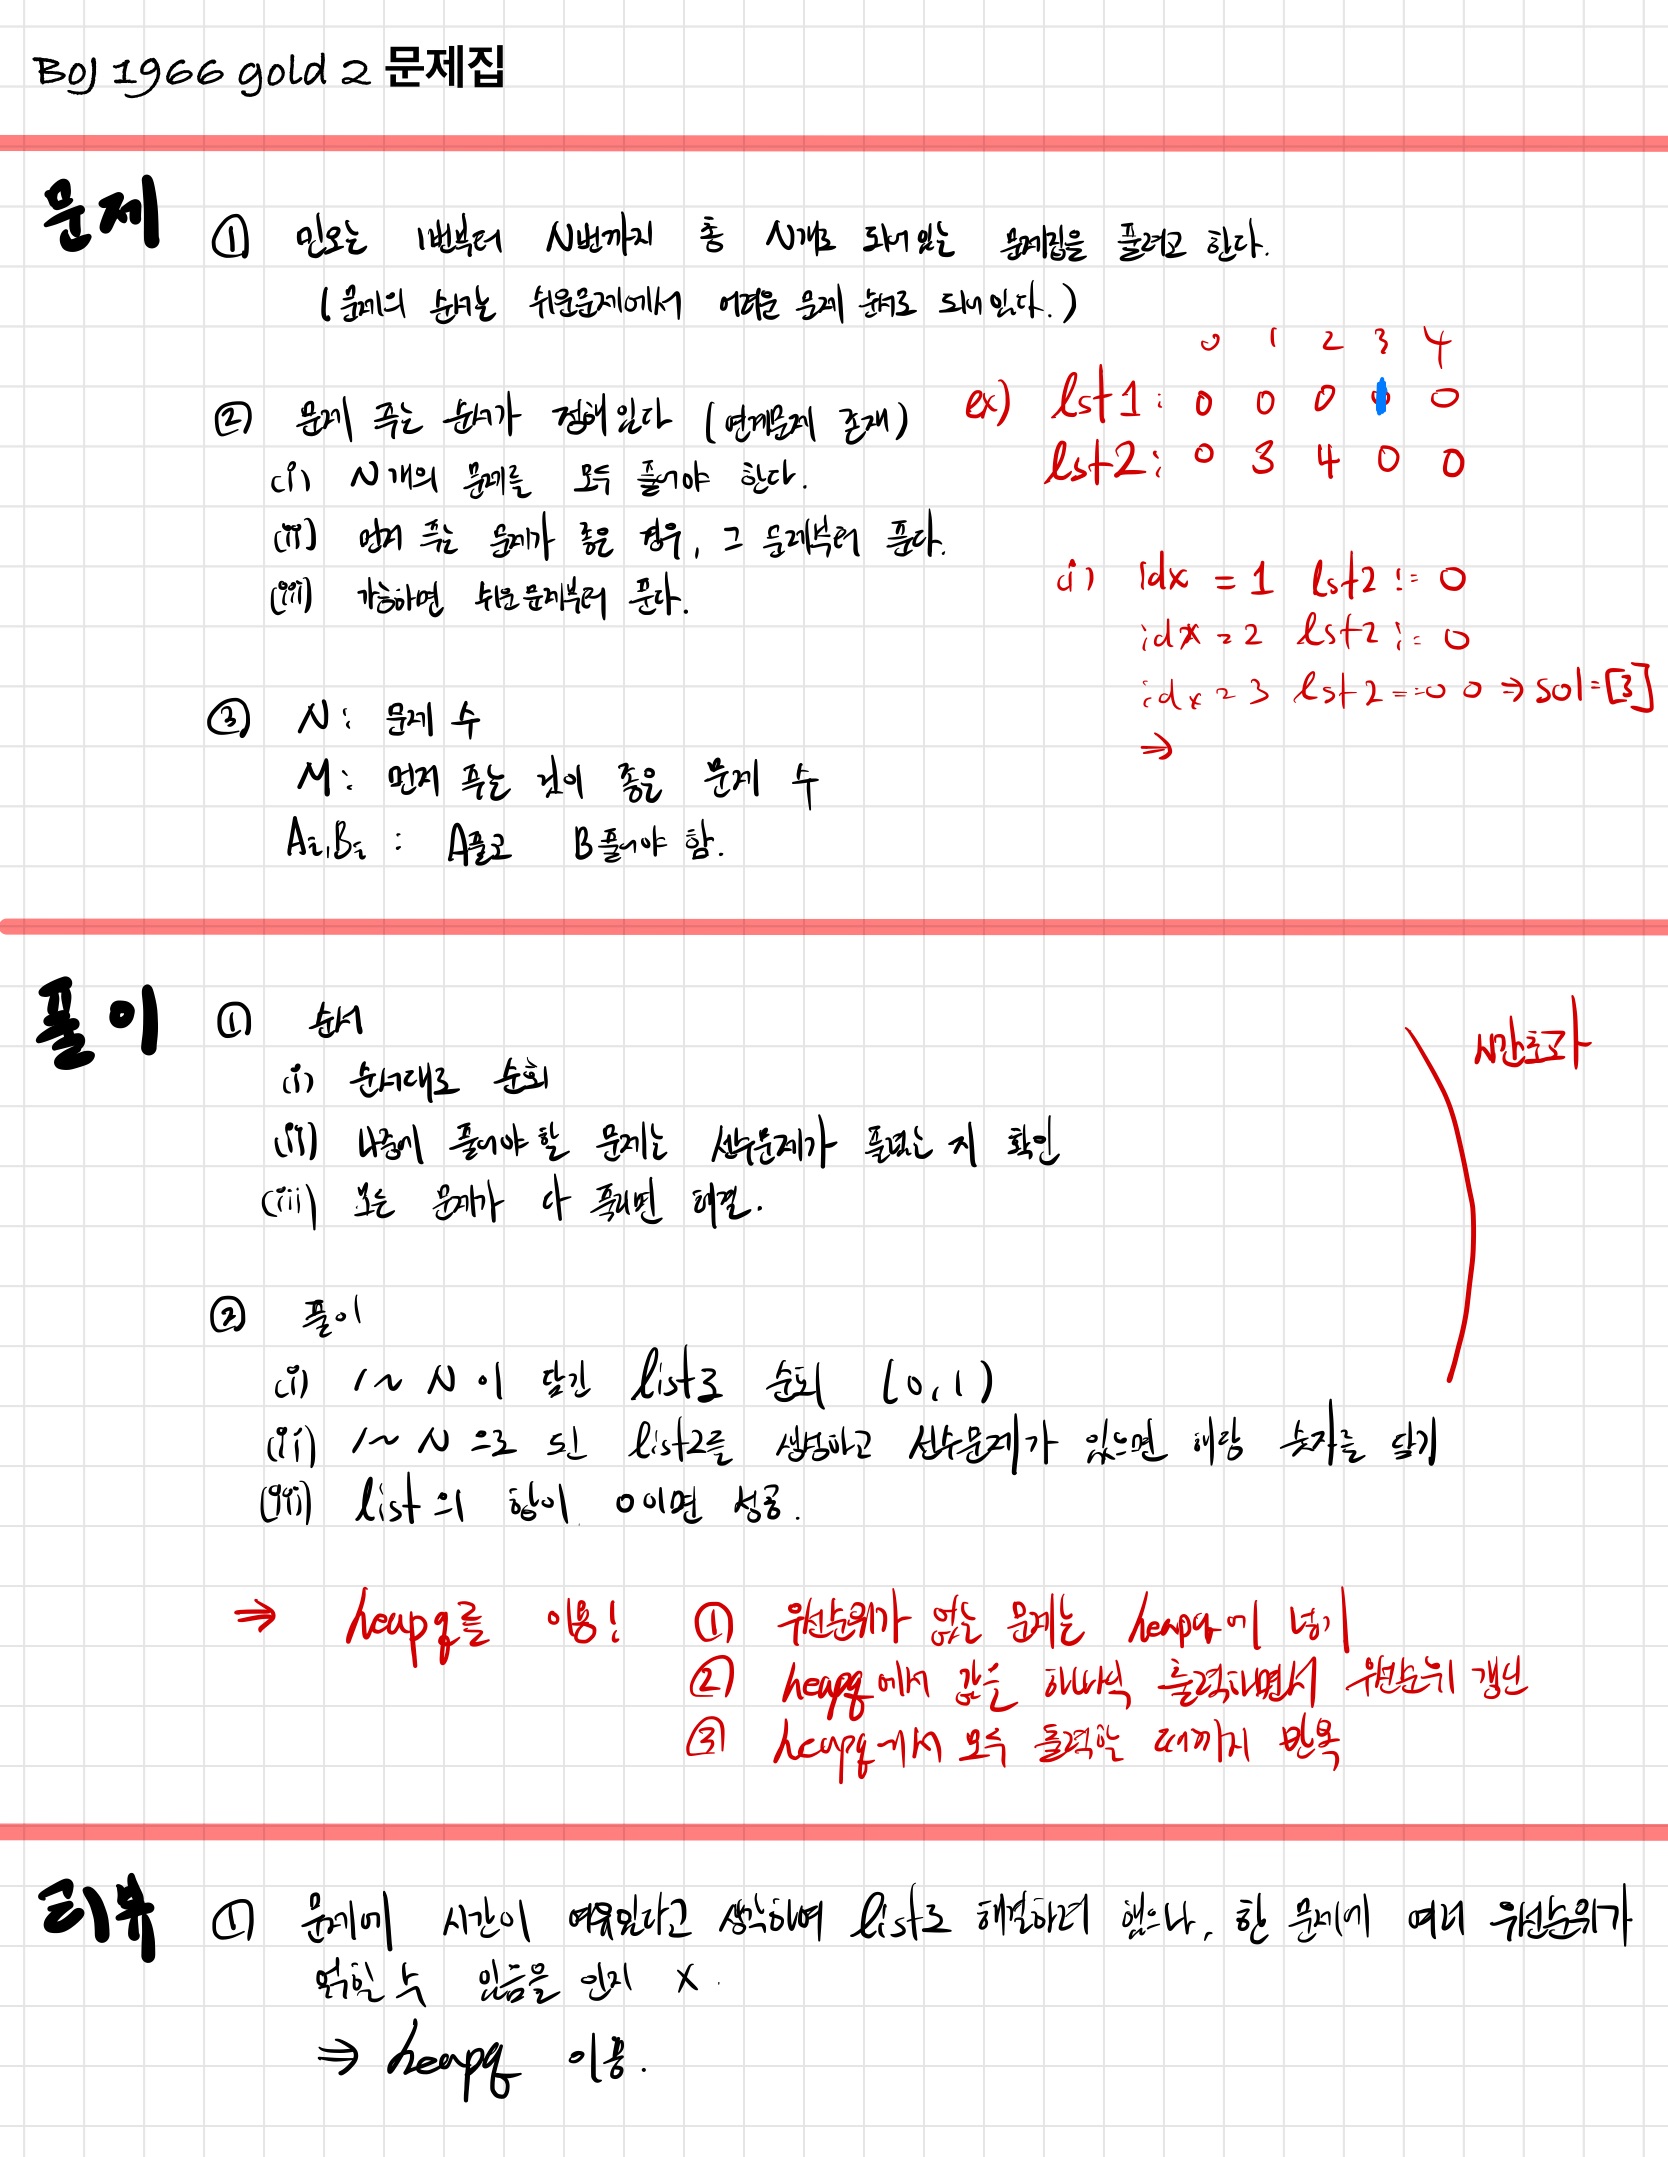 BOJ 1966 gold 2 문제집
문제
① 민오는 1번부터 N번까지 총 N개로 되어 있는 문제집을 풀려고 한다.
(문제의 순서는 쉬운문제에서 어려운 문제 순서로 되어 있다.)
② 문제 푸는 순서가 정해있다 (연계문제 존재)
(i) N개의 문제를 모두 풀어야 한다.
(ii) 먼저 푸는 문제가 좋은 경우, 그 문제부터 푼다.
(iii) 가능하면 쉬운 문제부터 푼다.
③ N: 문제 수
M: 먼저 푸는 것이 좋은 문제 수
Ai, Bi : A풀고 B풀어야 함.
0 1 2 3 4
ex) lst1: 0 0 0 0 0
lst2: 0 3 4 0 0
(i) idx = 1 lst2 != 0
idx = 2 lst2 != 0
idx = 3 lst2 == 0 0 ⇒ sol = [3]
⇒
풀이
① 순서
(i) 순서대로 순회
(ii) 나중에 풀어야 할 문제는 선수문제가 풀렸는 지 확인
(iii) 모든 문제가 다 풀리면 해결.
② 풀이
(i) 1~N이 담긴 list로 순회 (0, 1)
(ii) 1~N으로 된 list2를 생성하고 선수문제가 있으면 해당 숫자를 담기
(iii) list의 합이 0이면 성공.
시간초과
⇒ heapq를 이용! ① 우선순위가 없는 문제는 heapq에 넣기
② heapq에서 값을 하나씩 출력하면서 우선순위 갱신
③ heapq에서 모두 출력할 때까지 반복
리뷰
① 문제에 시간이 여유있다고 생각하여 list로 해결하려 했으나, 한 문제에 여러 우선순위가
얽힐 수 있음을 인지 X.
⇒ heapq 이용.